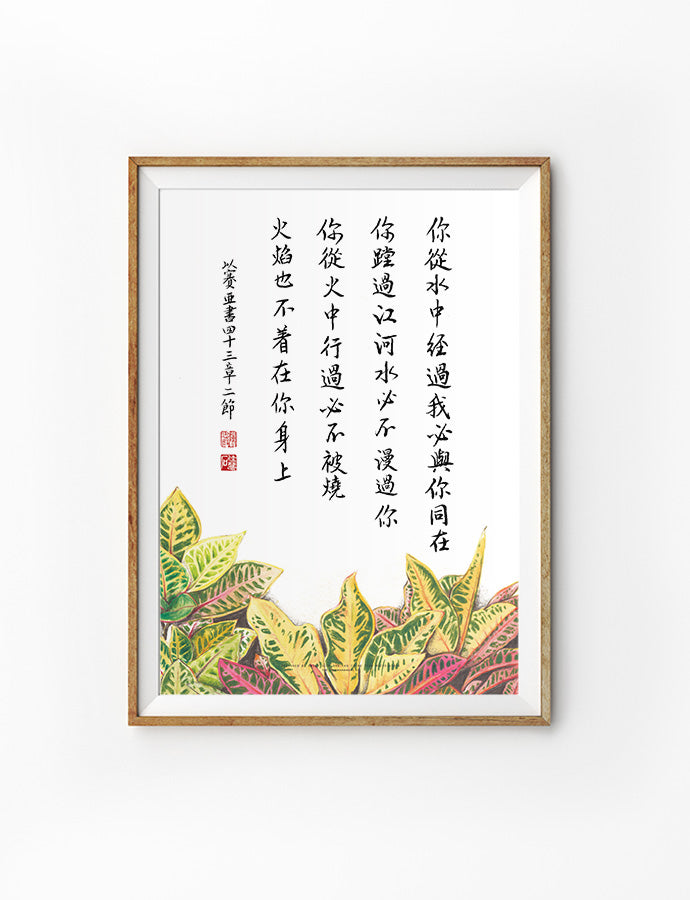 你從水中經過我必與你同在
你蹚過江河水必不漫過你
你從火中行過必不被燒
火焰也不着在你身上
以賽亞書四十三章二節